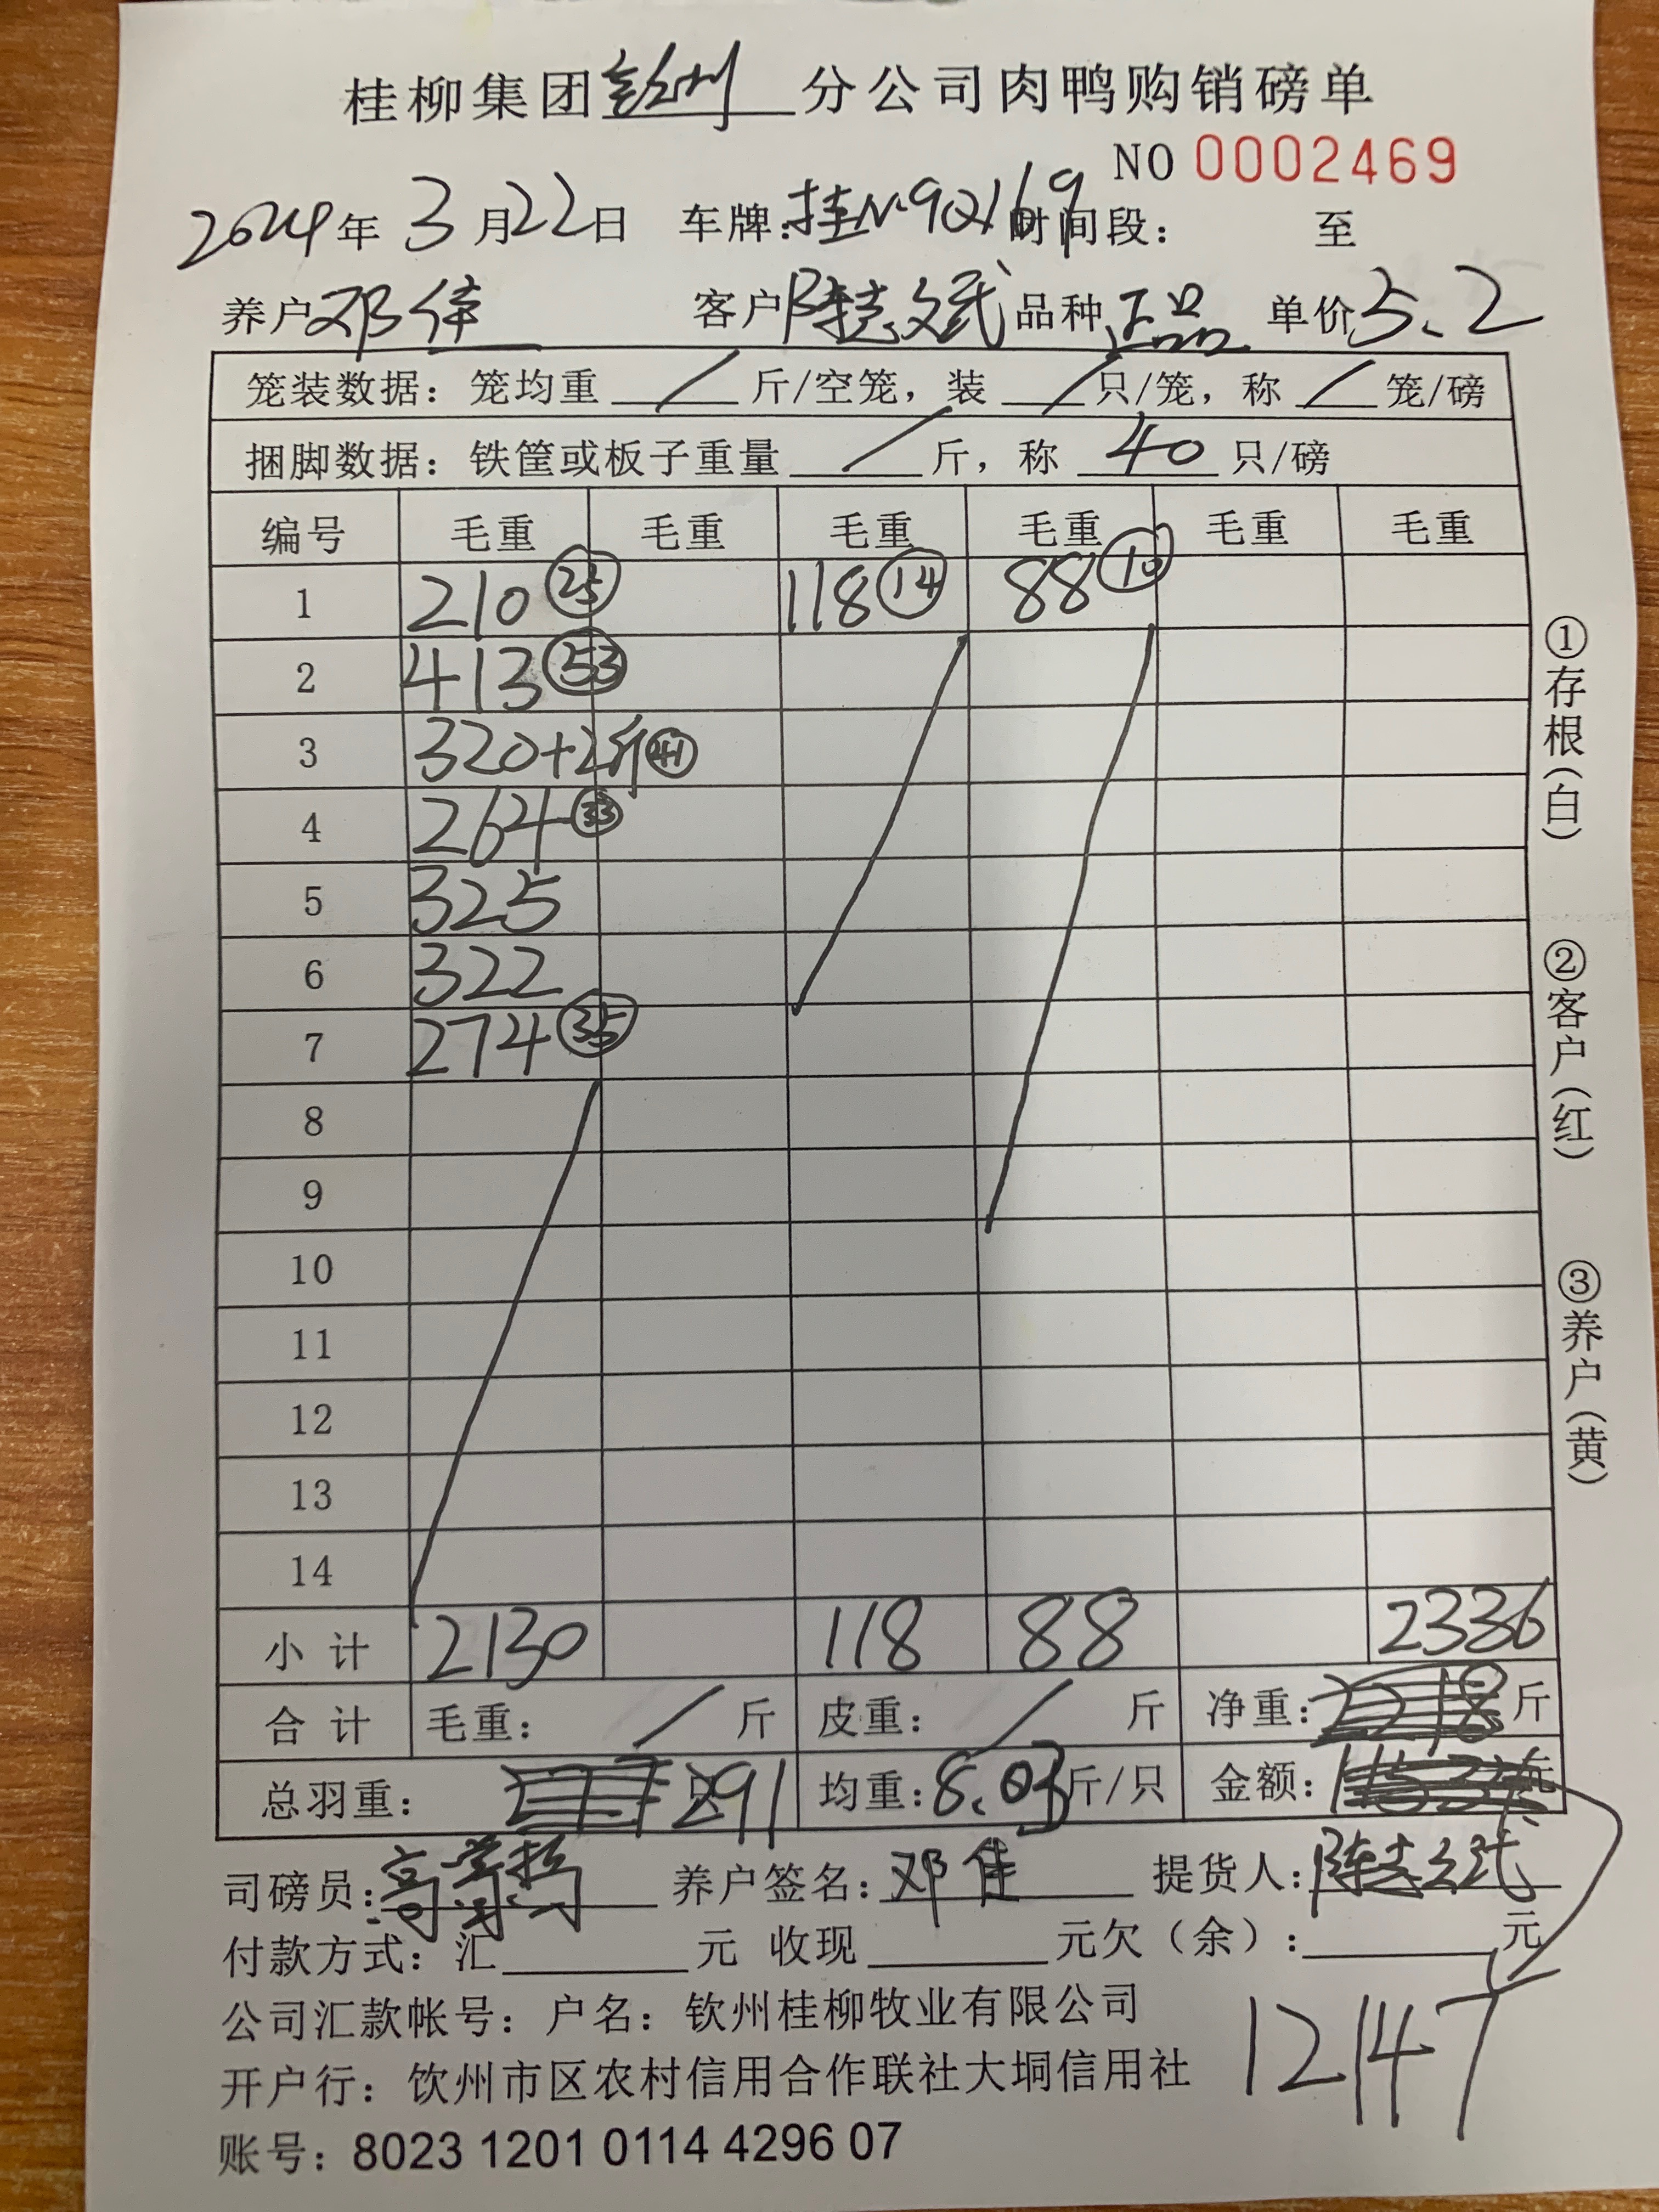 桂柳集团钦州分公司肉鸭购销磅单
NO 0002469
2024年 3月22日 车牌:桂N·9Q169 时间段: 至
养户 邓佳 客户 陈志斌 品种 正品 单价 5.2
笼装数据: 笼均重 / 斤/空笼, 装 / 只/笼, 称 / 笼/磅
捆脚数据: 铁筐或板子重量 / 斤, 称 40 只/磅
编号 毛重 毛重 毛重 毛重 毛重 毛重
1 210 25 118 14 88 10
2 413 53
3 320+2斤 41
4 264 33
5 325
6 322
7 274 35
8
9
10
11
12
13
14
小计 2130 118 88 2336
合计 毛重: / 斤 皮重: / 斤 净重: 斤
总羽重: 291 均重: 8.03 斤/只 金额: 元
司磅员: 高 养户签名: 邓佳 提货人: 陈志斌
付款方式: 汇 元 收现 元欠(余): 元
12147
公司汇款帐号: 户名: 钦州桂柳牧业有限公司
开户行: 钦州市区农村信用合作联社大垌信用社
账号: 8023 1201 0114 4296 07
①存根(白)
②客户(红)
③养户(黄)